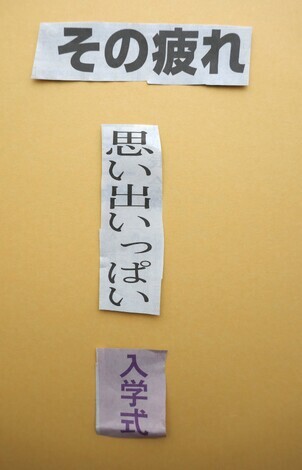 その疲れ
思い出いっぱい
入学式